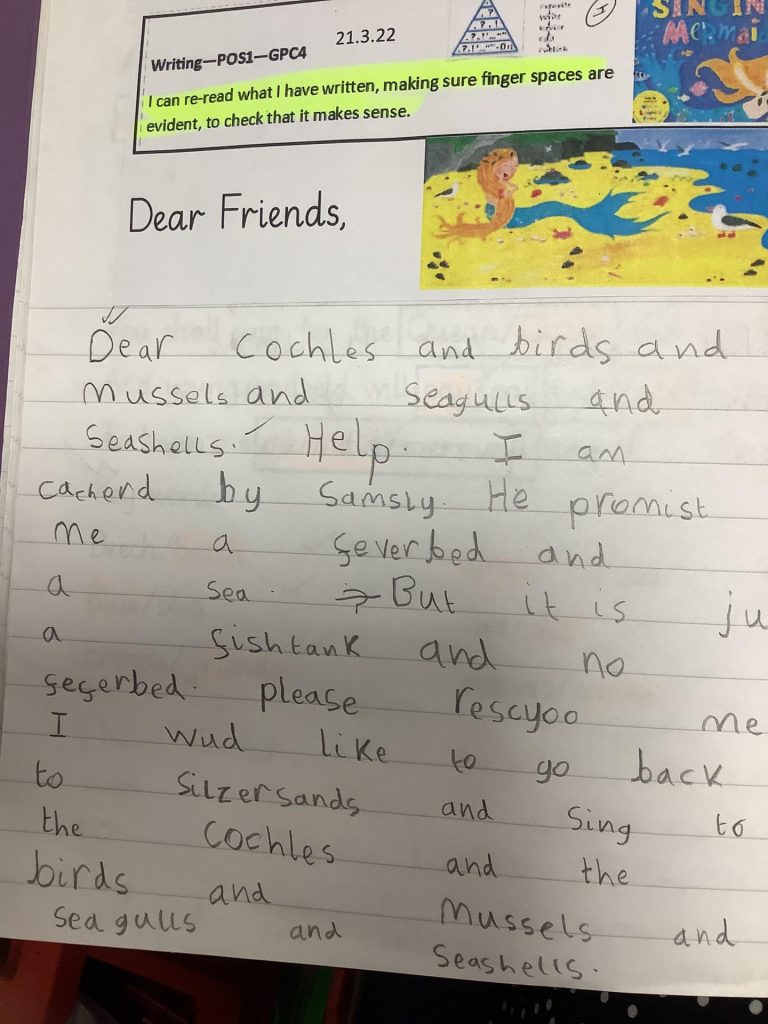 SINGIN
Mermai
Writing—POS1—GPC4 21.3.22
I can re-read what I have written, making sure finger spaces are
evident, to check that it makes sense.
Dear Friends,
Dear Cochles and birds and
mussels and seagulls and
seashells. Help. I am
cacherd by Samsly. He promist
me a feverbed and
a sea. But it is ju
a fishtank and no
feferbed. please rescyoo me
I wud like to go back
to Silzersands and sing to
the cochles and the
birds and mussels and
seagulls and seashells.